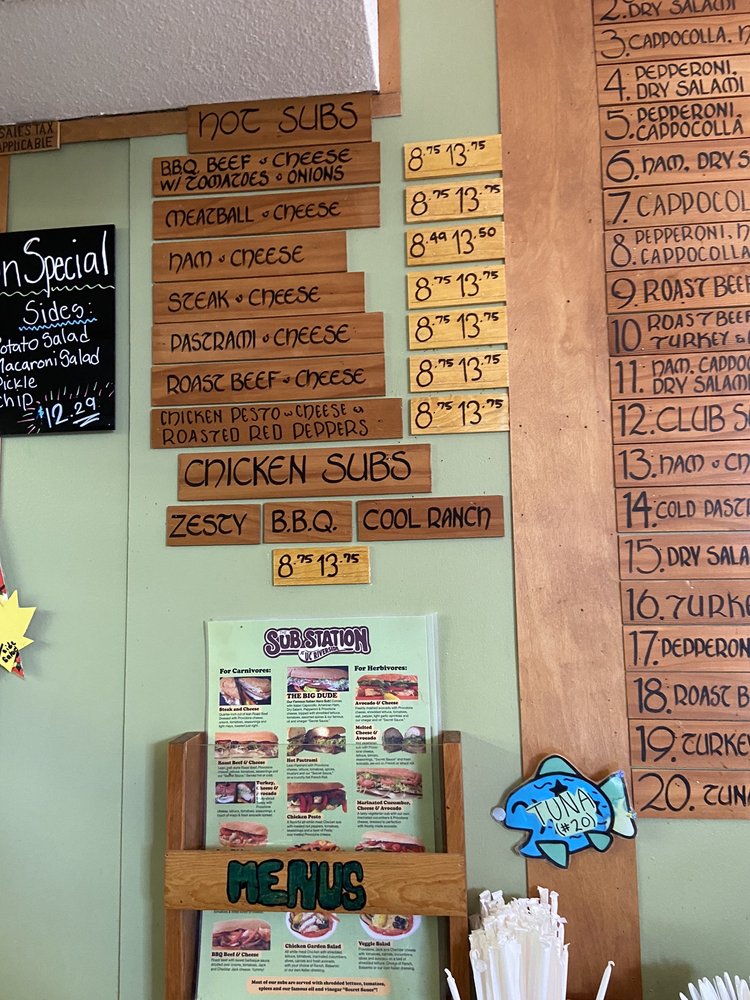 SALES TAX
APPLICABLE
Special
Sides:
Potato Salad
Macaroni Salad
Pickle
Chip
$12.29
HOT SUBS
B.B.Q. BEEF & CHEESE
W/ TOMATOES & ONIONS
8.75 13.75
MEATBALL & CHEESE
8.75 13.75
HAM & CHEESE
8.49 13.50
STEAK & CHEESE
8.75 13.75
PASTRAMI & CHEESE
8.75 13.75
ROAST BEEF & CHEESE
8.75 13.75
CHICKEN PESTO w CHEESE &
ROASTED RED PEPPERS
8.75 13.75
CHICKEN SUBS
ZESTY
B.B.Q.
COOL RANCH
8.75 13.75
2. DRY SALAMI
3. CAPPOCOLLA,
4. PEPPERONI,
DRY SALAMI
5. PEPPERONI,
CAPPOCOLLA
6. HAM, DRY
7. CAPPOCOLL
8. PEPPERONI, H
CAPPOCOLLA
9. ROAST BEEF
10. ROAST BEEF
TURKEY &
11. HAM, CAPPOC
DRY SALAM
12. CLUB
13. HAM & CH
14. COLD PASTR
15. DRY SALA
16. TURK
17. PEPPERON
18. ROAST B
19. TURKEY
20. TUN
TUNA
(#20)
SUB STATION
UC RIVERSIDE
For Carnivores:
For Herbivores:
Steak and Cheese
THE BIG DUDE
Avocado & Cheese
Melted
Cheese &
Avocado
Roast Beef & Cheese
Hot Pastrami
Turkey,
Cheese &
Avocado
Chicken Pesto
Marinated Cucumber,
Cheese & Avocado
MENUS
BBQ Beef & Cheese
Chicken Garden Salad
Veggie Salad
Most of our subs are served with shredded lettuce, tomatoes,
spices and our famous oil and vinegar "Secret Sauce"!